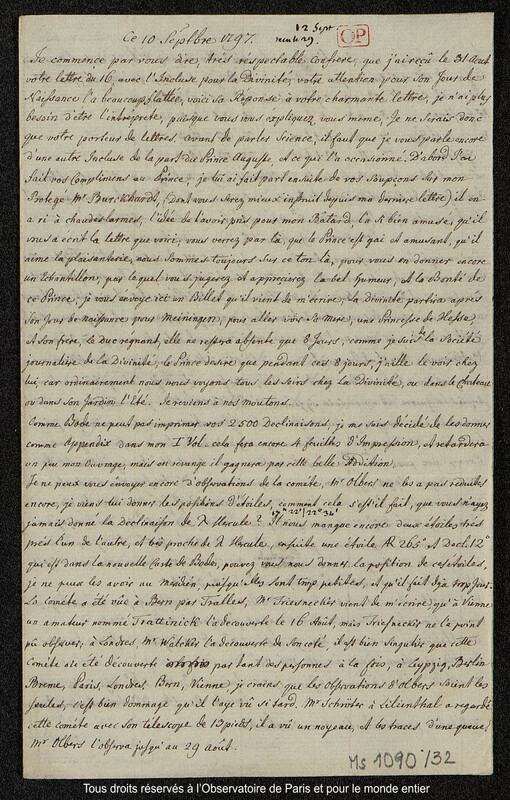 Ce 10 Septbre 1797.
12 Sept
OP
Je commence par vous dire, très respectable Confrere, que j'ai reçu le 31 Aout
votre lettre du 16, avec l'Incluse pour la Divinité, votre attention pour son Jour de
Naissance l'a beaucoup flattée, voici sa Réponse à votre charmante lettre, je n'ai plus
besoin d'être l'interprete, puisque vous vous expliquez vous meme. Je ne serais donc
que votre porteur de lettres. avant de parler science, il faut que je vous parle encore
d'une autre Incluse de la part du Prince Auguste, et ce qui l'a occasionné. D'abord j'ai
fait vos Complimens au Prince, je lui ai fait part ensuite de vos soupçons sur mon
Protegé Mr Burckhardt, (dont vous serez mieux instruit depuis ma derniere lettre) il en
a ri à chaudes larmes, l'idée de l'avoir pris pour mon Bâtard l'a si bien amusé, qu'il
vous a ecrit la lettre que voici, vous verrez par là, que le Prince est gai et amusant, qu'il
aime la plaisanterie, nous sommes toujours sur ce ton là, pour vous en donner encore
un Echantillon, par le quel vous jugerez et apprecierez la bel humeur, et la Bonté de
ce Prince, je vous envoye ici un Billet qu'il vient de m'ecrire, la Divinité partira après
son Jour de Naissance pour Meiningen, pour aller voir sa Mere, une Princesse de Hesse
et son frère, le Duc regnant, elle ne restera absente que 8 Jours, comme je suis de la Societé
journaliere de la Divinité, le Prince desire que pendant ces 8 jours, j'aille le voir chez
lui, car ordinairement nous nous voyons tous les soirs chez la Divinité, ou dans le Chateau
ou dans son Jardin l'Eté. Je reviens à nos moutons.
Comme Bode ne peut pas imprimer vos 2500 Declinaisons, je me suis décidé de les donner
comme Appendix dans mon I Vol. cela fera encore 4 feuilles d'Impression, et retardera
un peu mon Ouvrage, mais en revenge il gagnera par cette belle Addition.
Je ne peux vous envoyer encore d'observations de la comète, Mr Olbers ne les a pas reduites
encore, je viens lui donner les positions d'étoiles, comment cela s'est-il fait, que vous n'ayez
jamais donné la Declinaison de λ Hercule? Il nous manque encore deux étoiles très
près l'un de l'autre, et très proche de λ Hercule, ensuite une étoile AR 265° et Decl. 12°
qui est dans la nouvelle Carte de Bode, pouvez vous nous donner la position de ces étoiles,
je ne peux les avoir au meridien, puisqu'elles sont trop petites, et qu'il fait déja trop Jour.
La comète a été vüe à Bern par Tralles, Mr Triesnecker vient de m'ecrire, qu'à Vienne
un amateur nommé Trattinick l'a decouverte le 16 Août, mais Triesnecker ne l'a point
pû observer, à Londres, Mr Walcker l'a decouverte de son coté, il est bien singulier que cette
Comète ait été decouverte par tant des personnes à la fois, à Leypzig, Berlin
Breme, Paris, Londres, Bern, Vienne, je crains que les Observations d'Olbers soient les
seules, c'est bien dommage qu'il l'aye vû si tard. Mr Schröter à Lilienthal a regardé
cette comète avec son telescope de 13 pieds, il a vû un noyeau, et les traces d'une queue,
Mr Olbers l'observa jusqu'au 29 août.
Ms 1090/32
Tous droits réservés à l'Observatoire de Paris et pour le monde entier